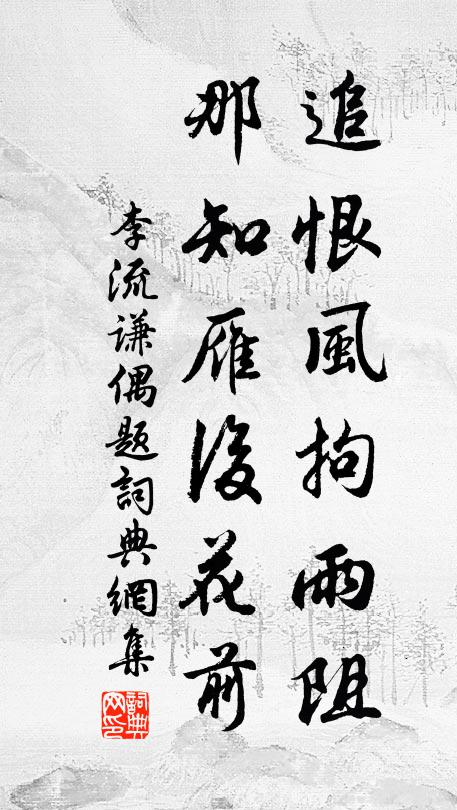 追恨風拘雨阻
那知雁後花前
李流谦偶题詞典網集
詞典网印